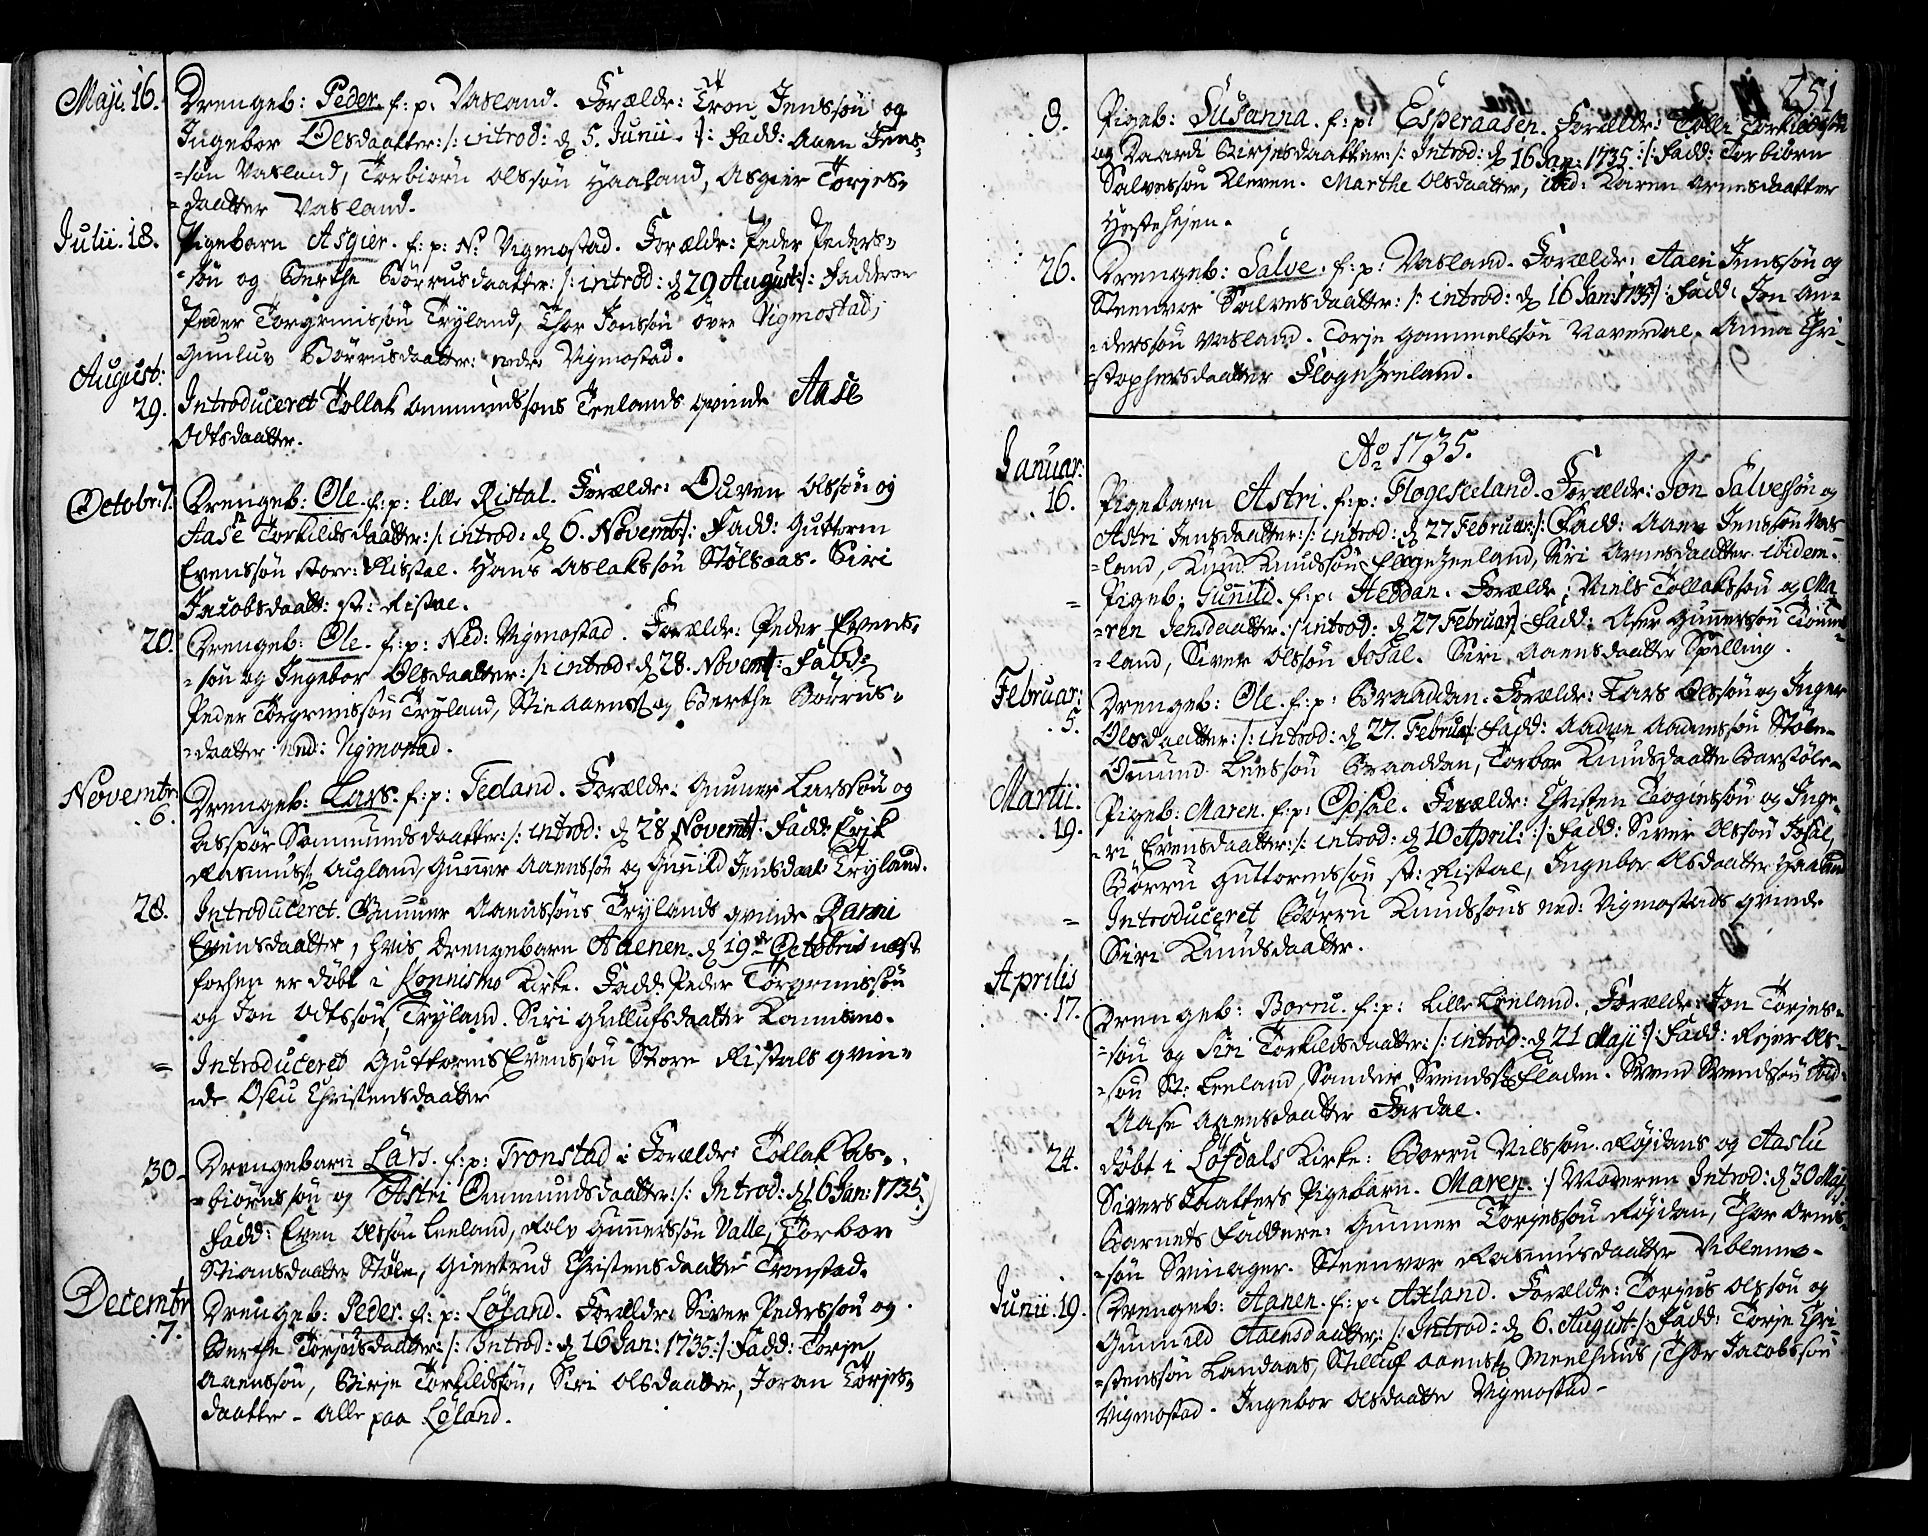 Maji. 16. Drengeb: Peder f: p: Vasland. Forældr: Tron Jenssøn og
Ingebor Olsdaatter :/: introd: d 5. Junii :/: Fadd: Aaen Jens-
-søn Vasland, Torbiørn Olssøn Haaland, Asgier Torjes-
-daatter Vasland.
Julii. 18. Pigebarn Asgier. f: p: N: Vigmostad. Forældr: Peder Peders-
-søn og Berthe Børrusdaatter :/: introd: d 29 August :/: Faddere
Peder Torgrimssøn Tryland, Thor Jonssøn øvre Vigmostad,
Gunluv Børrusdaatter nedr Vigmostad.
August:
29. Introduceret Tollak Ommundsøns Trelands qvinde Aase
Odtsdaatter.
Octobr: 7. Drengeb: Ole. f: p: lille Ristal. Forældr: Ouven Olssøn og
Aase Torkildsdaatter :/: introd: d 6. Novemb :/: Fadd: Guttorm
Evenssøn storr: Ristal. Hans Aslakssøn Stølsaas. Siri
Jacobsdaatt: st: Ristal.
20. Drengeb: Ole. f: p: Ned: Vigmostad. Forældr: Peder Evens-
-søn og Ingebor Olsdaatter :/: introd: d 28. Novemb :/: Fadd:
Peder Torgrimssøn Tryland, Stie Aaens og Berthe Børrus-
-daatter ned: Vigmostad.
Novembr:
6. Drengeb: Lars. f: p: Fedand. Forældr: Gunner Larssøn og
Aaspør Sammundsdaatter :/: introd: d 28 Novemb :/: Fadd: Erik
Rasmuss Augland, Gunner Aaenssøn og Gunild Jensdaatt: Tryland.
28. Introduceret. Gunner Aaenssøns Trylands qvinde Ranni
Evensdaatter, hvis Drengebarn Aaenen. d 19de Octobris næst
forhen er døbt i Konnismo Kirke. Fadd: Peder Torgrimssøn
og Jon Odtssøn Tryland. Siri Gullufsdaatter Konnismo.
= Introduceret Guttorms Evenssøn Store Ristals qvin-
-de Oslu Christensdaatter
30. Drengebarn Lars. f: p: Tronstad. Forældr: Tollak As-
-biørnssøn og Astri Ommundsdaatter :/: Introd: d 16 Jan: 1735 :/:
Fadd: Even Olssøn Leeland, Rolv Gunnerssøn Valle, Torbor
Stiansdaatter Støle, Giertrud Christensdaatter Tronstad.
Decembr:
7. Drengeb: Peder. f: p: Løland. Forældr: Siver Pederssøn og
Berthe Torjusdaatter :/: Introd: d 16 Jan: 1735 :/: Fadd: Torje
Aaenssøn, Birje Torkildssøn, Siri Olsdaatter, Joran Torjes-
daatter - alle paa Løland.
251
8. Pigeb: Susanna. f: p: Esperaasen. Forældr: Tolli Torkildssøn
og Baardi Birjesdaatter :/: Introd: d 16 Jan: 1735 :/: Fadd: Torbiørn
Salvessøn Kleven. Marthe Olsdaatter, ibid: Karen Arnesdaatter
Høstehejen.
26. Drengeb: Salve. f: p: Vasland. Forældr: Aaen Jenssøn og
Steenvor Salvesdaatter :/: introd: d 16 Jan: 1735 :/: Fadd: Jon An-
-derssøn Vasland. Torje Gammelssøn Naverdal. Anna Chri-
-stophersdaatter Flogehreland.
Ao 1735.
Januar:
16. Pigebarn Astri. f: p: Flogeseland. Forældr: Jon Salvessøn og
Astri Jensdaatter :/: introd: d 27 Februar :/: Fadd: Aaen Jenssøn Vas-
-land, Knud Knudssøn Flogehreland, Siri Arnesdaatter ibidem.
= Pigeb: Gunild. f: p: Heddan. Forældr: Niels Tollakssøn og Ma-
-ren Jensdaatter :/: introd: d 27 Februar :/: Fadd: Aser Gunnerssøn Tronne-
-land, Siver Olssøn Josal. Siri Aaensdaatter Spilling.
Februar:
5. Drengeb: Ole. f: p: Braaddan. Forældr: Lars Olssøn og Inger
Olsdaatter :/: introd: d 27. Februar :/: Fadd: Aadne Aadnessøn Støle-
Ommund Leenssøn Braaddan, Torbor Knudsdaatter Barstøle-
Martii.
19. Pigeb: Maren. f: p: Opsal. Forældr: Christen Trogenssøn og Inge-
-ri Evensdaatter :/: introd: d 10 April :/: Fadd: Siver Olssøn Josal,
Børru Guttormssøn st: Ristal, Ingebor Olsdaatter Haaland
= Introduceret Børru Knudssøns ned: Vigmostads qvinde
Siri Knudsdaatter.
Aprilis
17. Drengeb: Borru. f: p: Lille Leeland. Forældr: Jon Torjes-
-søn og Siri Torkildsdaatter :/: introd: d 21 Maji :/: Fadd: Rejer Ols-
-søn St: Leeland, Sander Svends Fladen. Svend Svendssøn ibid:
Aase Aaensdaatter Fardal.
24. døbt i Løfdals Kirke: Borru Nilssøn Røjdans og Aaslu
Sivers Daatters Pigebarn. Maren. :/: Moderen Introd: d 30 Maj.
Barnets Faddere: Gunner Torjessøn Røjdan, Thor Orms-
-søn Svinager. Steenvor Rasmusdaatter Viblemo-
Junii. 19. Drengeb: Aanen. f: p: Axland. Forældr: Torjus Olssøn og
Gunnild Aaensdaatter :/: Introd: d 6. August :/: Fadd: Torje Chri-
-stenssøn Landaas, Stilluf Aaens Meelhuus, Thor Jacobssøn
Vigmostad. Ingebor Olsdaatter Vigmostad-